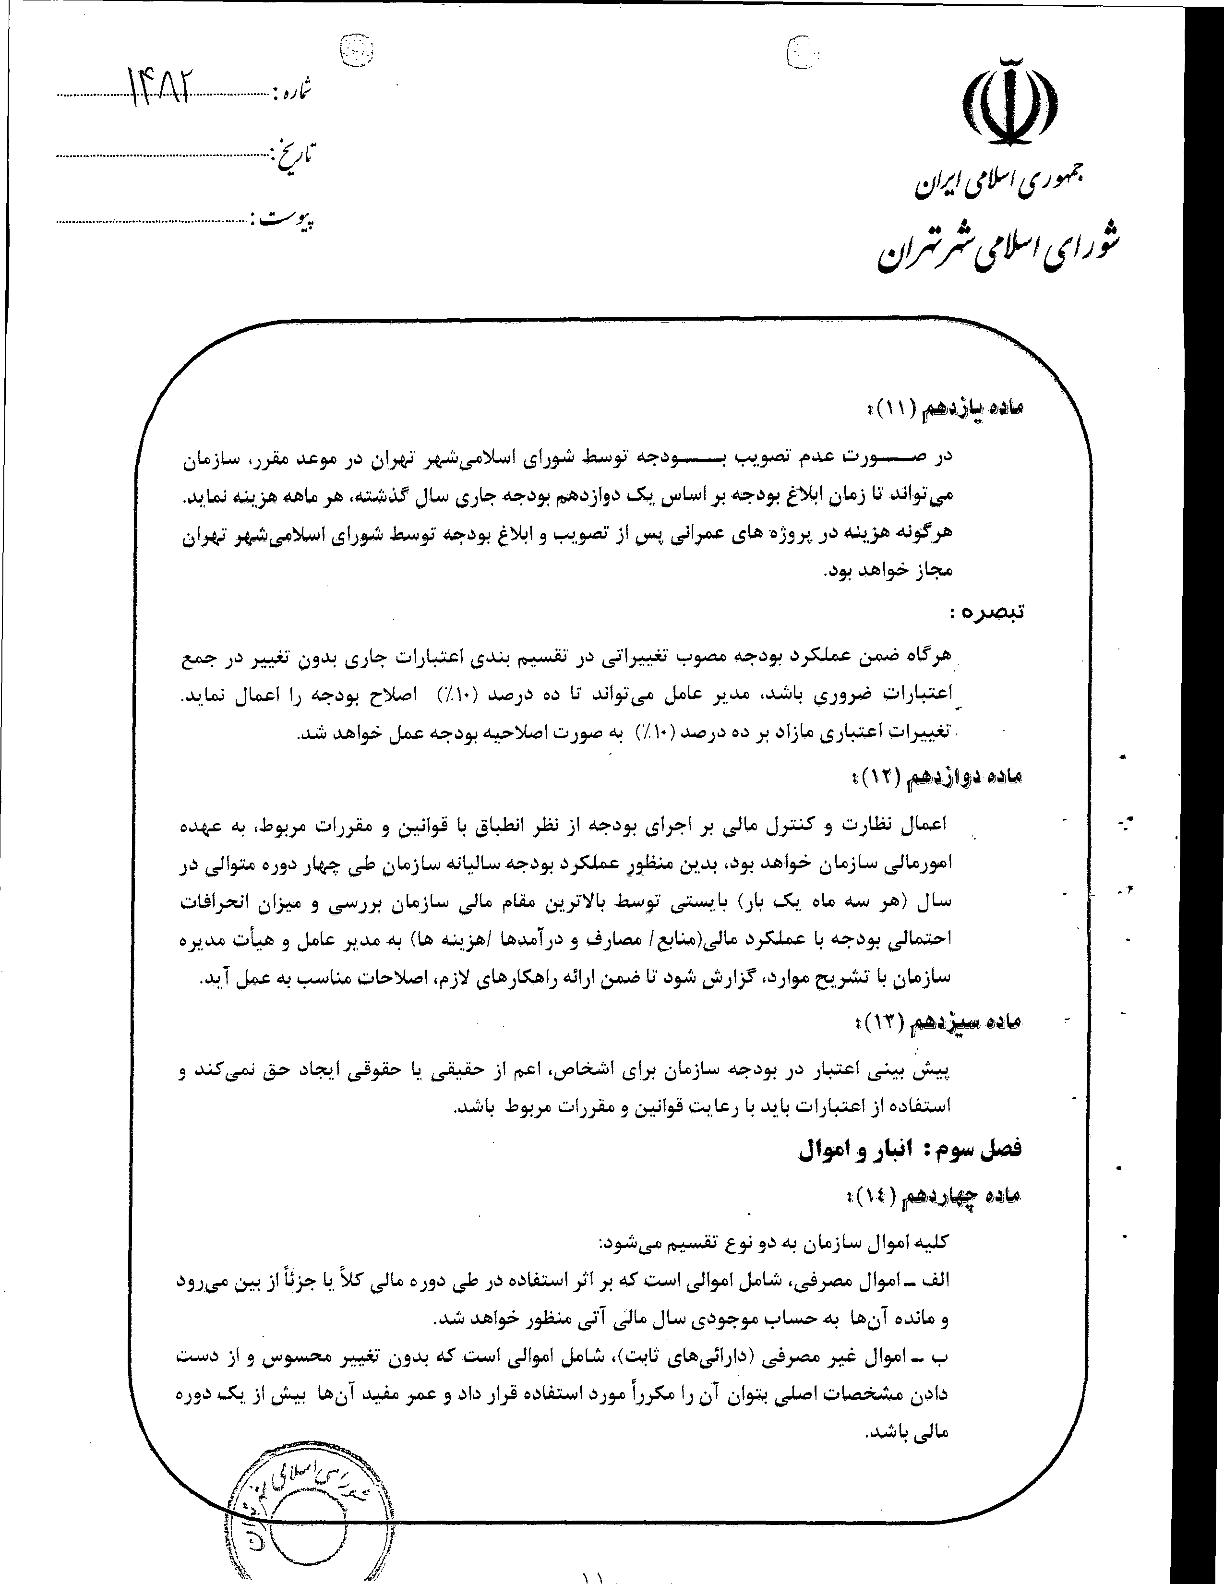 جمهوری اسلامی ایران
شورای اسلامی شهر تهران
شماره : ۱۴۸۲
تاریخ :
پیوست :
ماده یازدهم (۱۱):
در صـــورت عدم تصویب بـــودجه توسط شورای اسلامی‌شهر تهران در موعد مقرر، سازمان
می‌تواند تا زمان ابلاغ بودجه بر اساس یک دوازدهم بودجه جاری سال گذشته، هر ماهه هزینه نماید.
هرگونه هزینه در پروژه های عمرانی پس از تصویب و ابلاغ بودجه توسط شورای اسلامی‌شهر تهران
مجاز خواهد بود.
تبصره :
هرگاه ضمن عملکرد بودجه مصوب تغییراتی در تقسیم بندی اعتبارات جاری بدون تغییر در جمع
اعتبارات ضروری باشد، مدیر عامل می‌تواند تا ده درصد (۱۰٪) اصلاح بودجه را اعمال نماید.
تغییرات اعتباری مازاد بر ده درصد (۱۰٪) به صورت اصلاحیه بودجه عمل خواهد شد.
ماده دوازدهم (۱۲):
اعمال نظارت و کنترل مالی بر اجرای بودجه از نظر انطباق با قوانین و مقررات مربوط، به عهده
امورمالی سازمان خواهد بود، بدین منظور عملکرد بودجه سالیانه سازمان طی چهار دوره متوالی در
سال (هر سه ماه یک بار) بایستی توسط بالاترین مقام مالی سازمان بررسی و میزان انحرافات
احتمالی بودجه با عملکرد مالی(منابع/ مصارف و درآمدها /هزینه ها) به مدیر عامل و هیأت مدیره
سازمان با تشریح موارد، گزارش شود تا ضمن ارائه راهکارهای لازم، اصلاحات مناسب به عمل آید.
ماده سیزدهم (۱۳):
پیش بینی اعتبار در بودجه سازمان برای اشخاص، اعم از حقیقی یا حقوقی ایجاد حق نمی‌کند و
استفاده از اعتبارات باید با رعایت قوانین و مقررات مربوط باشد.
فصل سوم : انبار و اموال
ماده چهاردهم (۱۴):
کلیه اموال سازمان به دو نوع تقسیم می‌شود:
الف ـ اموال مصرفی، شامل اموالی است که بر اثر استفاده در طی دوره مالی کلاً یا جزئاً از بین می‌رود
و مانده آن‌ها به حساب موجودی سال مالی آتی منظور خواهد شد.
ب ـ اموال غیر مصرفی (دارائی‌های ثابت)، شامل اموالی است که بدون تغییر محسوس و از دست
دادن مشخصات اصلی بتوان آن را مکرراً مورد استفاده قرار داد و عمر مفید آن‌ها بیش از یک دوره
مالی باشد.
شورای اسلامی شهر تهران
۱۱